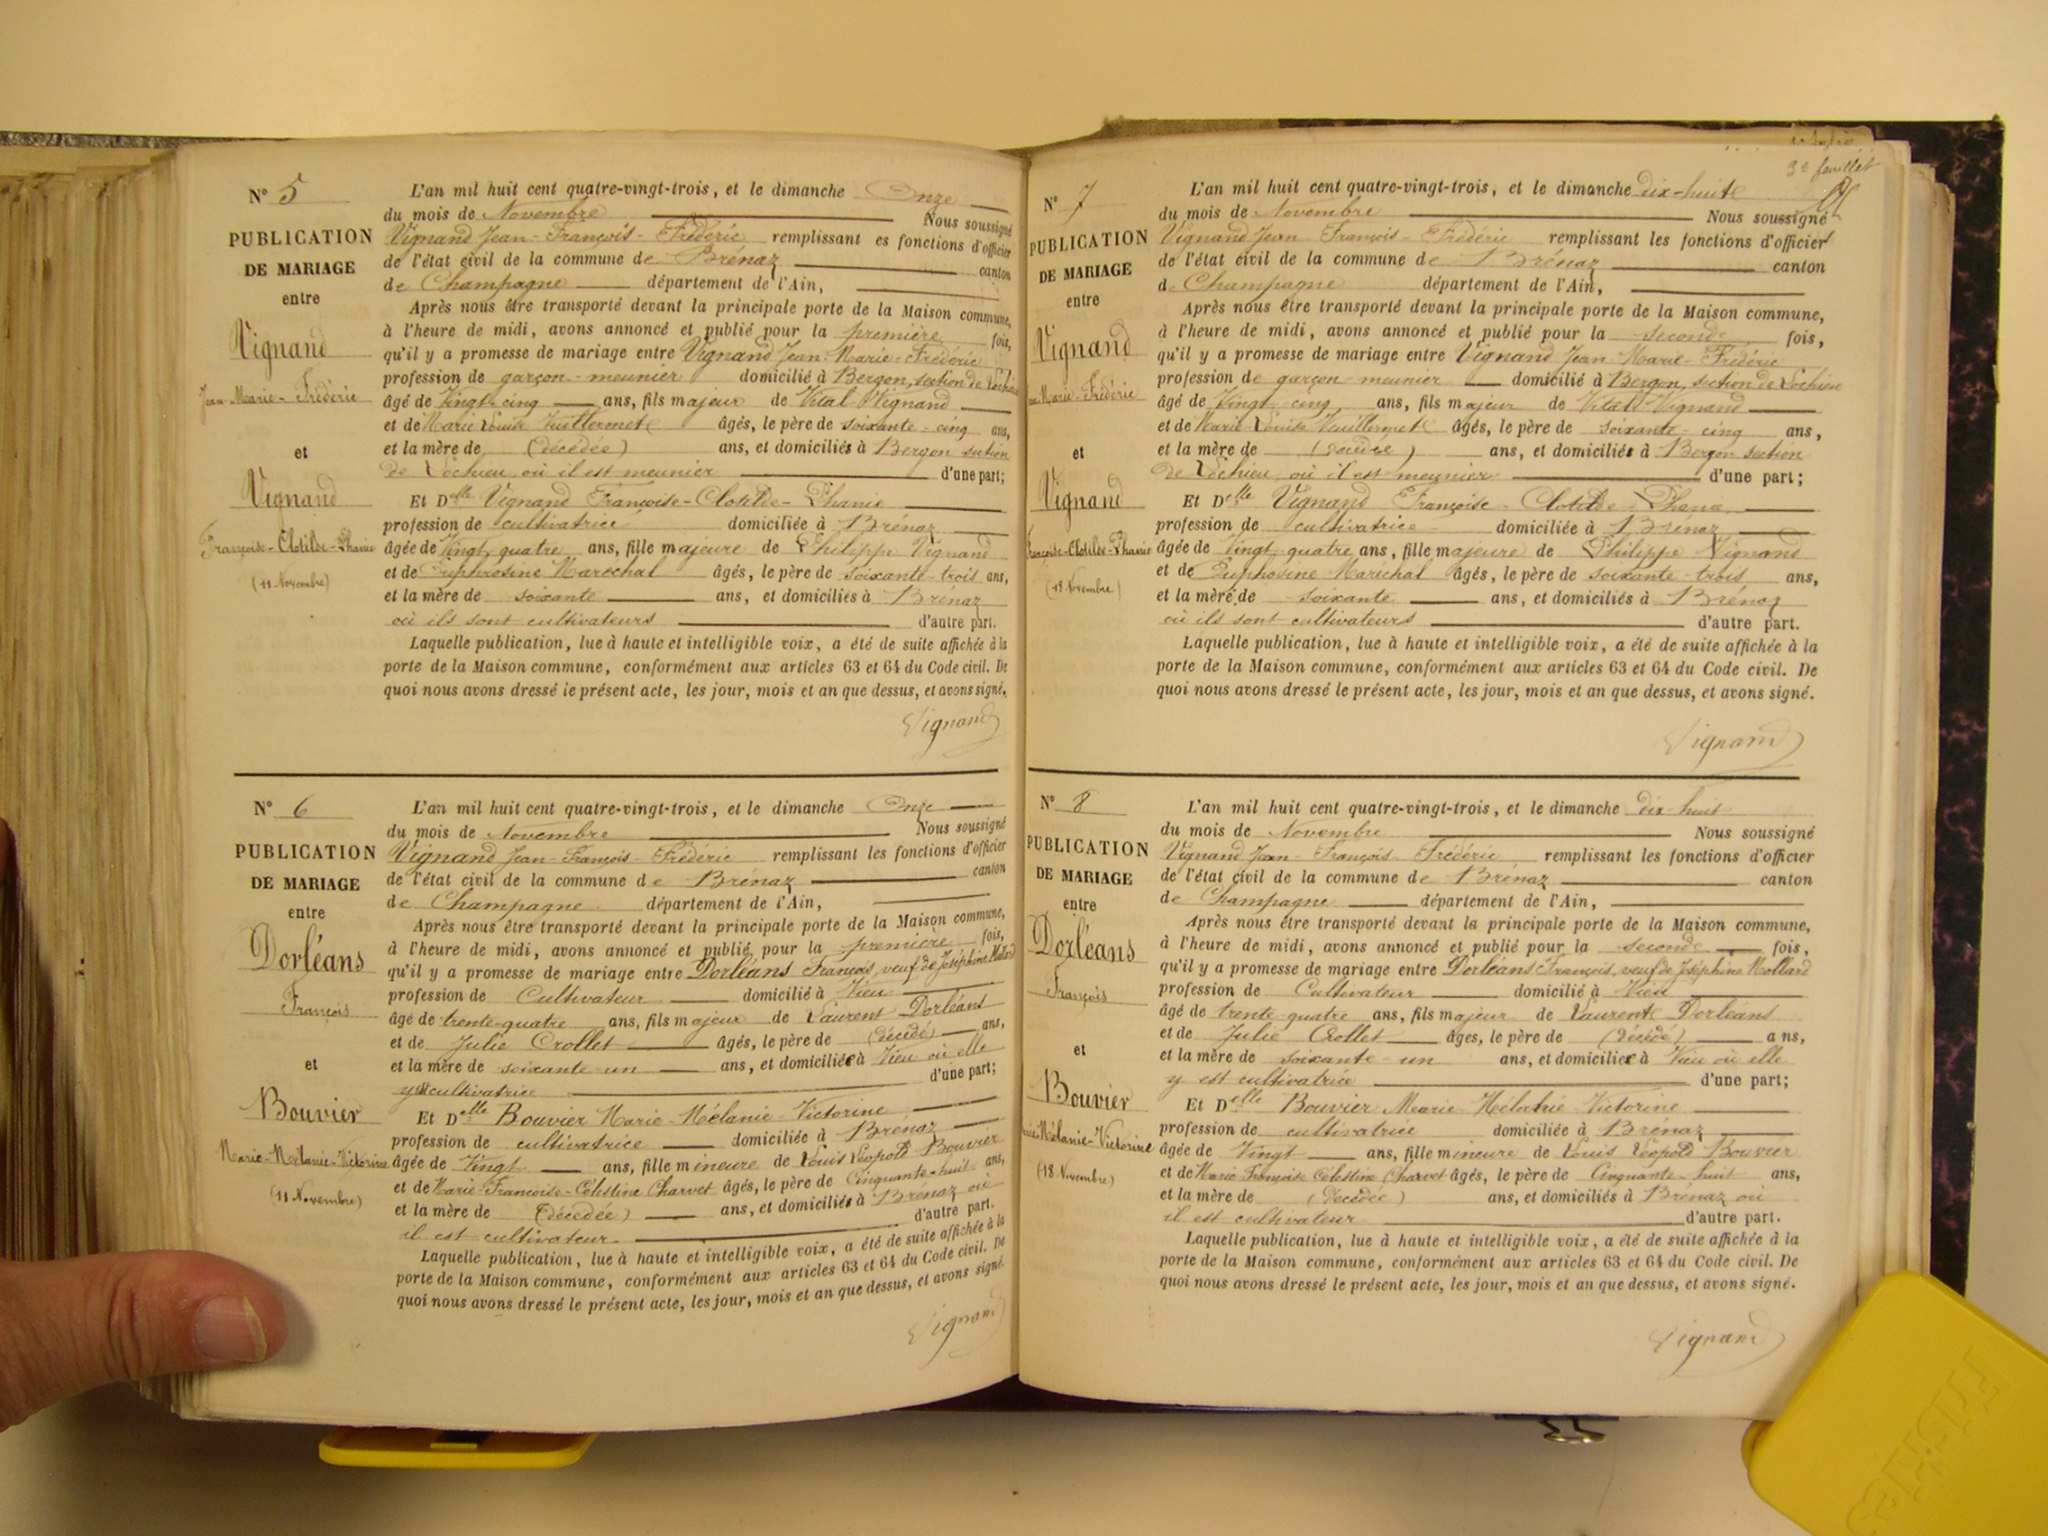 N° 5
PUBLICATION
DE MARIAGE
entre
Vignand
Jean-Marie-Frédéric
et
Vignand
Françoise-Clotilde-Phanie
(11 Novembre)
L'an mil huit cent quatre-vingt-trois, et le dimanche Onze
du mois de Novembre Nous soussigné
Vignand Jean-François-Frédéric remplissant es fonctions d'officier
de l'état civil de la commune de Brénaz canton
de Champagne département de l'Ain,
Après nous être transporté devant la principale porte de la Maison commune,
à l'heure de midi, avons annoncé et publié pour la première fois,
qu'il y a promesse de mariage entre Vignand Jean-Marie-Frédéric
profession de garçon-meunier domicilié à Bergon, section de Lochieu
âgé de Vingt-cinq ans, fils majeur de Vital Vignand
et de Marie Louise Vuillermet âgés, le père de soixante-cinq ans,
et la mère de (décédée) ans, et domiciliés à Bergon section
de Lochieu où il est meunier d'une part;
Et Delle Vignand Françoise-Clotilde-Phanie
profession de cultivatrice domiciliée à Brénaz
âgée de Vingt quatre ans, fille majeure de Philippe Vignand
et de Euphrosine Maréchal âgés, le père de soixante-trois ans,
et la mère de soixante ans, et domiciliés à Brénaz
où ils sont cultivateurs d'autre part.
Laquelle publication, lue à haute et intelligible voix, a été de suite affichée à la
porte de la Maison commune, conformément aux articles 63 et 64 du Code civil. De
quoi nous avons dressé le présent acte, les jour, mois et an que dessus, et avons signé.
Vignand
N° 6
PUBLICATION
DE MARIAGE
entre
Dorléans
François
et
Bouvier
Marie-Mélanie-Victorine
(11 Novembre)
L'an mil huit cent quatre-vingt-trois, et le dimanche Onze
du mois de Novembre Nous soussigné
Vignand Jean-François-Frédéric remplissant les fonctions d'officier
de l'état civil de la commune de Brénaz canton
de Champagne département de l'Ain,
Après nous être transporté devant la principale porte de la Maison commune,
à l'heure de midi, avons annoncé et publié pour la première fois,
qu'il y a promesse de mariage entre Dorléans François, veuf de Joséphine Mollard
profession de Cultivateur domicilié à Vieu
âgé de trente-quatre ans, fils majeur de Laurent Dorléans
et de Julie Crollet âgés, le père de (décédé) ans,
et la mère de soixante un ans, et domiciliée à Vieu où elle
y est cultivatrice d'une part;
Et Delle Bouvier Marie-Mélanie-Victorine
profession de cultivatrice domiciliée à Brénaz
âgée de Vingt ans, fille mineure de Louis Léopold Bouvier
et de Marie-Françoise-Célestine Charvet âgés, le père de Cinquante-huit ans,
et la mère de (décédée) ans, et domiciliés à Brénaz où
il est cultivateur d'autre part.
Laquelle publication, lue à haute et intelligible voix, a été de suite affichée à la
porte de la Maison commune, conformément aux articles 63 et 64 du Code civil. De
quoi nous avons dressé le présent acte, les jour, mois et an que dessus, et avons signé.
Vignand
3e feuillet
N° 7
PUBLICATION
DE MARIAGE
entre
Vignand
Marie-Frédéric
et
Vignand
Françoise-Clotilde-Phanie
(18 Novembre)
L'an mil huit cent quatre-vingt-trois, et le dimanche dix-huit
du mois de Novembre Nous soussigné
Vignand Jean François-Frédéric remplissant les fonctions d'officier
de l'état civil de la commune de Brénaz canton
de Champagne département de l'Ain,
Après nous être transporté devant la principale porte de la Maison commune,
à l'heure de midi, avons annoncé et publié pour la seconde fois,
qu'il y a promesse de mariage entre Vignand Jean-Marie-Frédéric
profession de garçon meunier domicilié à Bergon, section de Lochieu
âgé de Vingt cinq ans, fils majeur de Vital Vignand
et de Marie Louise Vuillermet âgés, le père de soixante-cinq ans,
et la mère de (décédée) ans, et domiciliés à Bergon section
de Lochieu, où il est meunier d'une part;
Et Delle Vignand Françoise-Clotilde-Phanie
profession de cultivatrice domiciliée à Brénaz
âgée de Vingt quatre ans, fille majeure de Philippe Vignand
et de Euphosine Maréchal âgés, le père de soixante-trois ans,
et la mère de soixante ans, et domiciliés à Brénaz
où ils sont cultivateurs d'autre part.
Laquelle publication, lue à haute et intelligible voix, a été de suite affichée à la
porte de la Maison commune, conformément aux articles 63 et 64 du Code civil. De
quoi nous avons dressé le présent acte, les jour, mois et an que dessus, et avons signé.
Vignand
N° 8
PUBLICATION
DE MARIAGE
entre
Dorléans
François
et
Bouvier
Mélanie-Victorine
(18 Novembre)
L'an mil huit cent quatre-vingt-trois, et le dimanche dix huit
du mois de Novembre Nous soussigné
Vignand Jean-François Frédéric remplissant les fonctions d'officier
de l'état civil de la commune de Brénaz canton
de Champagne département de l'Ain,
Après nous être transporté devant la principale porte de la Maison commune,
à l'heure de midi, avons annoncé et publié pour la seconde fois,
qu'il y a promesse de mariage entre Dorléans François, veuf de Joséphine Mollard
profession de Cultivateur domicilié à Vieu
âgé de trente quatre ans, fils majeur de Laurent Dorléans
et de Julie Crollet âgés, le père de (décédé) ans,
et la mère de soixante-un ans, et domiciliée à Vieu où elle
y est cultivatrice d'une part;
Et Delle Bouvier Marie Mélanie Victorine
profession de cultivatrice domiciliée à Brénaz
âgée de Vingt ans, fille mineure de Louis Léopold Bouvier
et de Marie Françoise Célestine Charvet âgés, le père de Cinquante-huit ans,
et la mère de (décédée) ans, et domiciliés à Brénaz où
il est cultivateur d'autre part.
Laquelle publication, lue à haute et intelligible voix, a été de suite affichée à la
porte de la Maison commune, conformément aux articles 63 et 64 du Code civil. De
quoi nous avons dressé le présent acte, les jour, mois et an que dessus, et avons signé.
Vignand